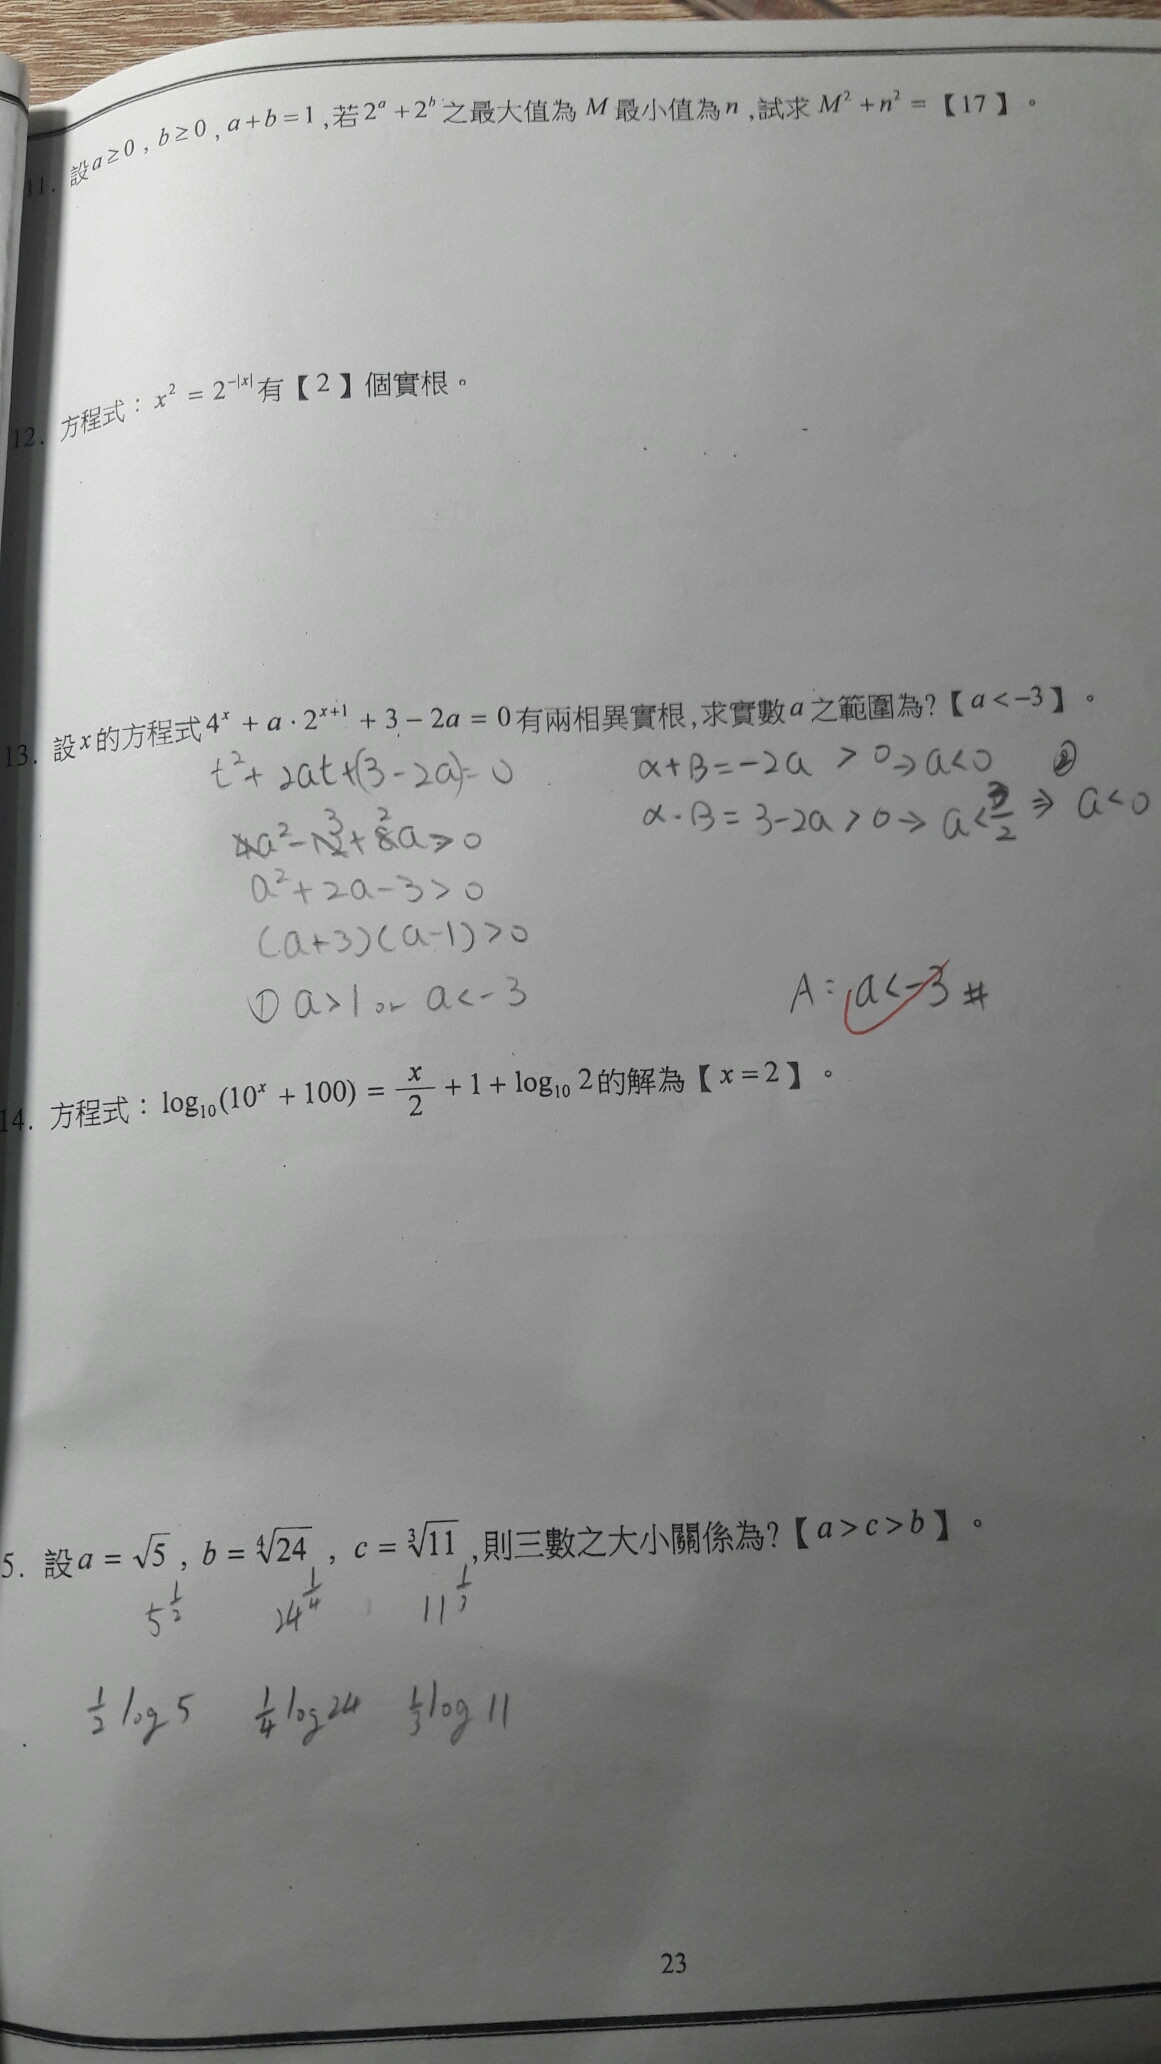 11. 設a≥0, b≥0, a+b=1,若2^a+2^b之最大值為 M 最小值為n,試求 M²+n² =【17】。
12. 方程式：x² = 2^{-|x|}有【2】個實根。
13. 設x的方程式4^x + a·2^{x+1} + 3 − 2a = 0有兩相異實根,求實數a之範圍為?【a<−3】。
t²+2at+(3-2a)=0
α+β=-2a >0⇒a<0 ②
α·β=3-2a>0→a<3/2 ⇒ a<0
a²-3+2a>0
a²+2a-3>0
(a+3)(a-1)>0
① a>1 or a<-3
A: a<-3 #
14. 方程式：log₁₀(10^x + 100) = x/2 + 1 + log₁₀ 2的解為【x=2】。
5. 設a = √5, b = ∜24, c = ∛11,則三數之大小關係為?【a>c>b】。
5^{1/2} 24^{1/4} 11^{1/3}
1/2 log 5 1/4 log 24 1/3 log 11
23